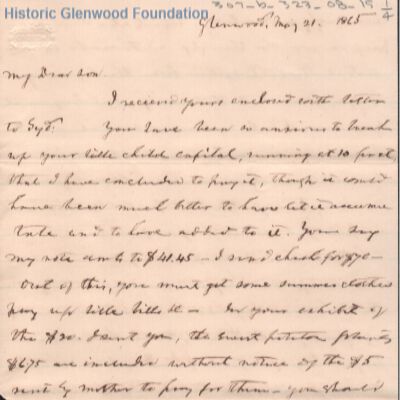 Historic Glenwood Foundation
307-b-323-08-19 1/4
Glenwood, May 21. 1865
My Dear son.
I recieved yours enclosed with letter
to Syd. You have been so anxious to break
up your little childs capital, running at 10 pr ct,
that I have concluded to pay it, though it would
have been much better to have let it accumu
late and to have added to it. You say
my note am to $41.45 — I send check for $70 —
Out of this, you must get some summer clothes
pay up little bills &c — In your exhibit of
the $20. I sent you, the sweet potatoes
$6.75 are included without notice of the $5
sent by mother to pay for them — you should